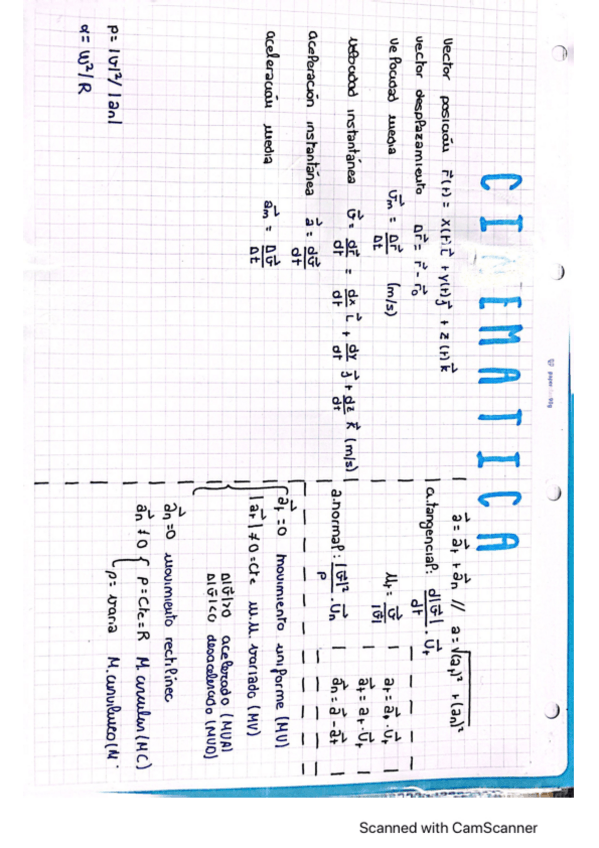 CINEMATICA
vector posición r⃗(t) = x(t)i⃗ + y(t)j⃗ + z(t)k⃗
vector desplazamiento Δr⃗ = r⃗ - r⃗₀
velocidad media v⃗m = Δr⃗/Δt (m/s)
velocidad instantánea v⃗ = dr⃗/dt = dx/dt i⃗ + dy/dt j⃗ + dz/dt k⃗ (m/s)
aceleración instantánea a⃗ = dv⃗/dt
aceleración media a⃗m = Δv⃗/Δt
ρ = |v|²/|an|
α = w²/R
a⃗ = a⃗t + a⃗n // a = √(at)² + (an)²
a.tangencial: d|v⃗|/dt · u⃗t
ut = v⃗/|v⃗|
a.normal: |v⃗|²/ρ · u⃗n
at = a⃗t · u⃗t
a⃗t = at · u⃗t
a⃗n = a⃗ - a⃗t
a⃗t = 0 movimiento uniforme (MU)
|a⃗t| ≠ 0 = Cte m.u. variado (MV)
Δ|v⃗|>0 acelerado (MUA)
Δ|v⃗|<0 desacelerado (MUD)
a⃗n = 0 movimiento rectilíneo
a⃗n ≠ 0 { ρ = Cte = R M. circular (MC)
ρ = varia M. curvilineo (M
Scanned with CamScanner